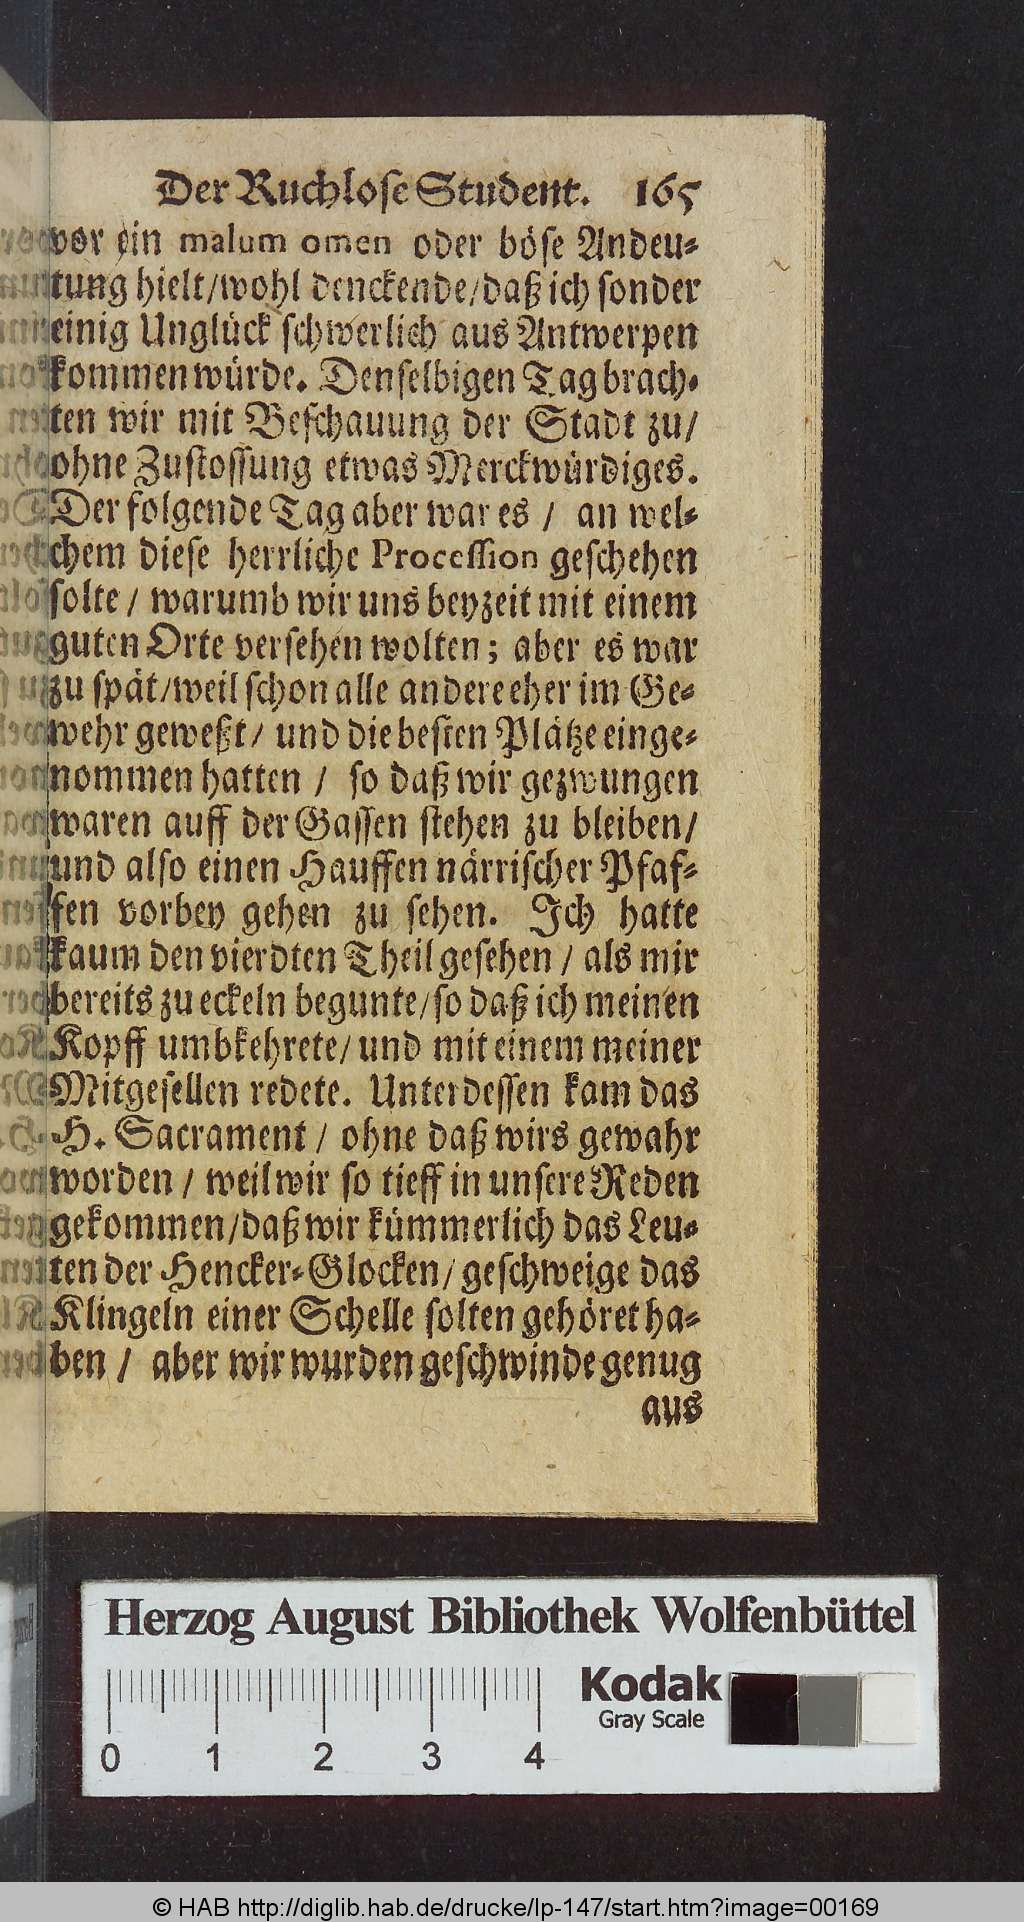 Der Ruchlose Student. 165
vor ein malum omen oder böse Andeu-
tung hielt/wohl denckende/daß ich sonder
einig Unglück schwerlich aus Antwerpen
kommen würde. Denselbigen Tag brach-
ten wir mit Beschauung der Stadt zu/
ohne Zustossung etwas Merckwürdiges.
Der folgende Tag aber war es / an wel-
chem diese herrliche Procession geschehen
solte / warumb wir uns beyzeit mit einem
guten Orte versehen wolten; aber es war
zu spät/weil schon alle andere eher im Ge-
wehr geweßt/ und die besten Plätze einge-
nommen hatten / so daß wir gezwungen
waren auff der Gassen stehen zu bleiben/
und also einen Hauffen närrischer Pfaf-
fen vorbey gehen zu sehen. Ich hatte
kaum den vierdten Theil gesehen / als mir
bereits zu eckeln begunte/so daß ich meinen
Kopff umbkehrete/ und mit einem meiner
Mitgesellen redete. Unterdessen kam das
H. Sacrament / ohne daß wirs gewahr
worden / weil wir so tieff in unsere Reden
gekommen/daß wir kümmerlich das Leu-
ten der Hencker-Glocken/ geschweige das
Klingeln einer Schelle solten gehöret ha-
ben / aber wir wurden geschwinde genug
aus
Herzog August Bibliothek Wolfenbüttel
Kodak
Gray Scale
0 1 2 3 4
© HAB http://diglib.hab.de/drucke/lp-147/start.htm?image=00169